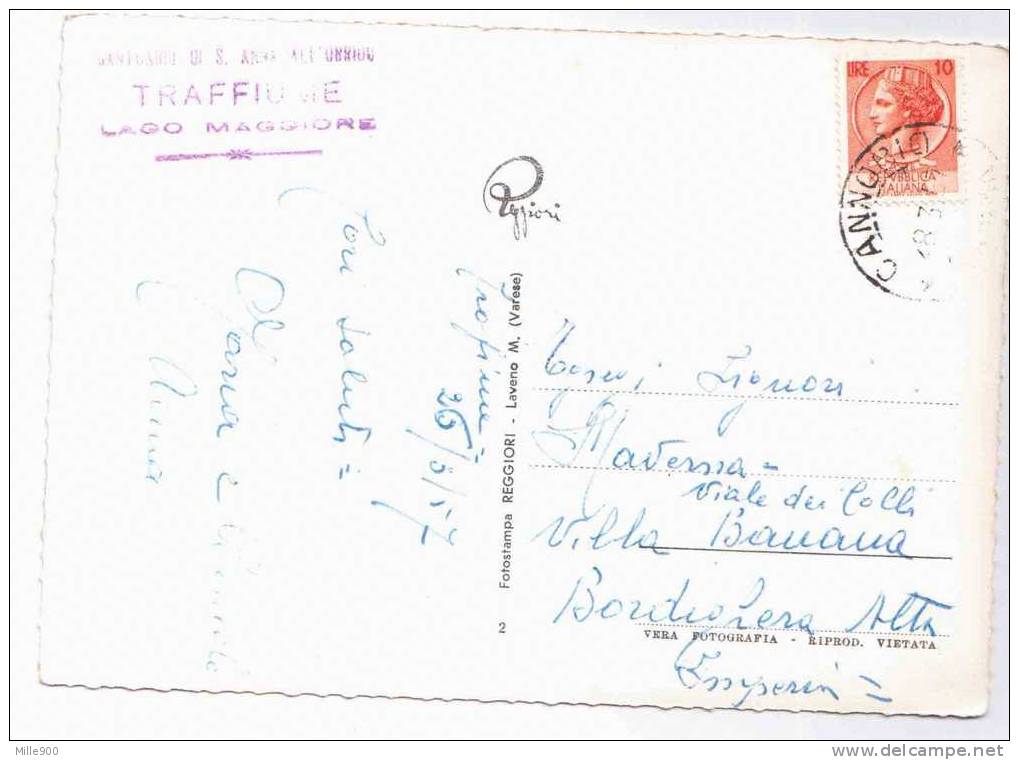 SANTUARIO DI S. ANNA ALL'ORRIDO
TRAFFIUME
LAGO MAGGIORE
LIRE 10
REPUBBLICA
ITALIANA
CANNOBIO
Reggiori
Traffiume =
26/8/57
Cari saluti =
e
Anna
Fotostampa REGGIORI - Laveno M. (Varese)
2
Signori
Maversa -
Viale dei Colli
Villa Banana
Bordighera Alta
VERA FOTOGRAFIA - RIPROD. VIETATA
Imperia =
Mille900
delcampe.net